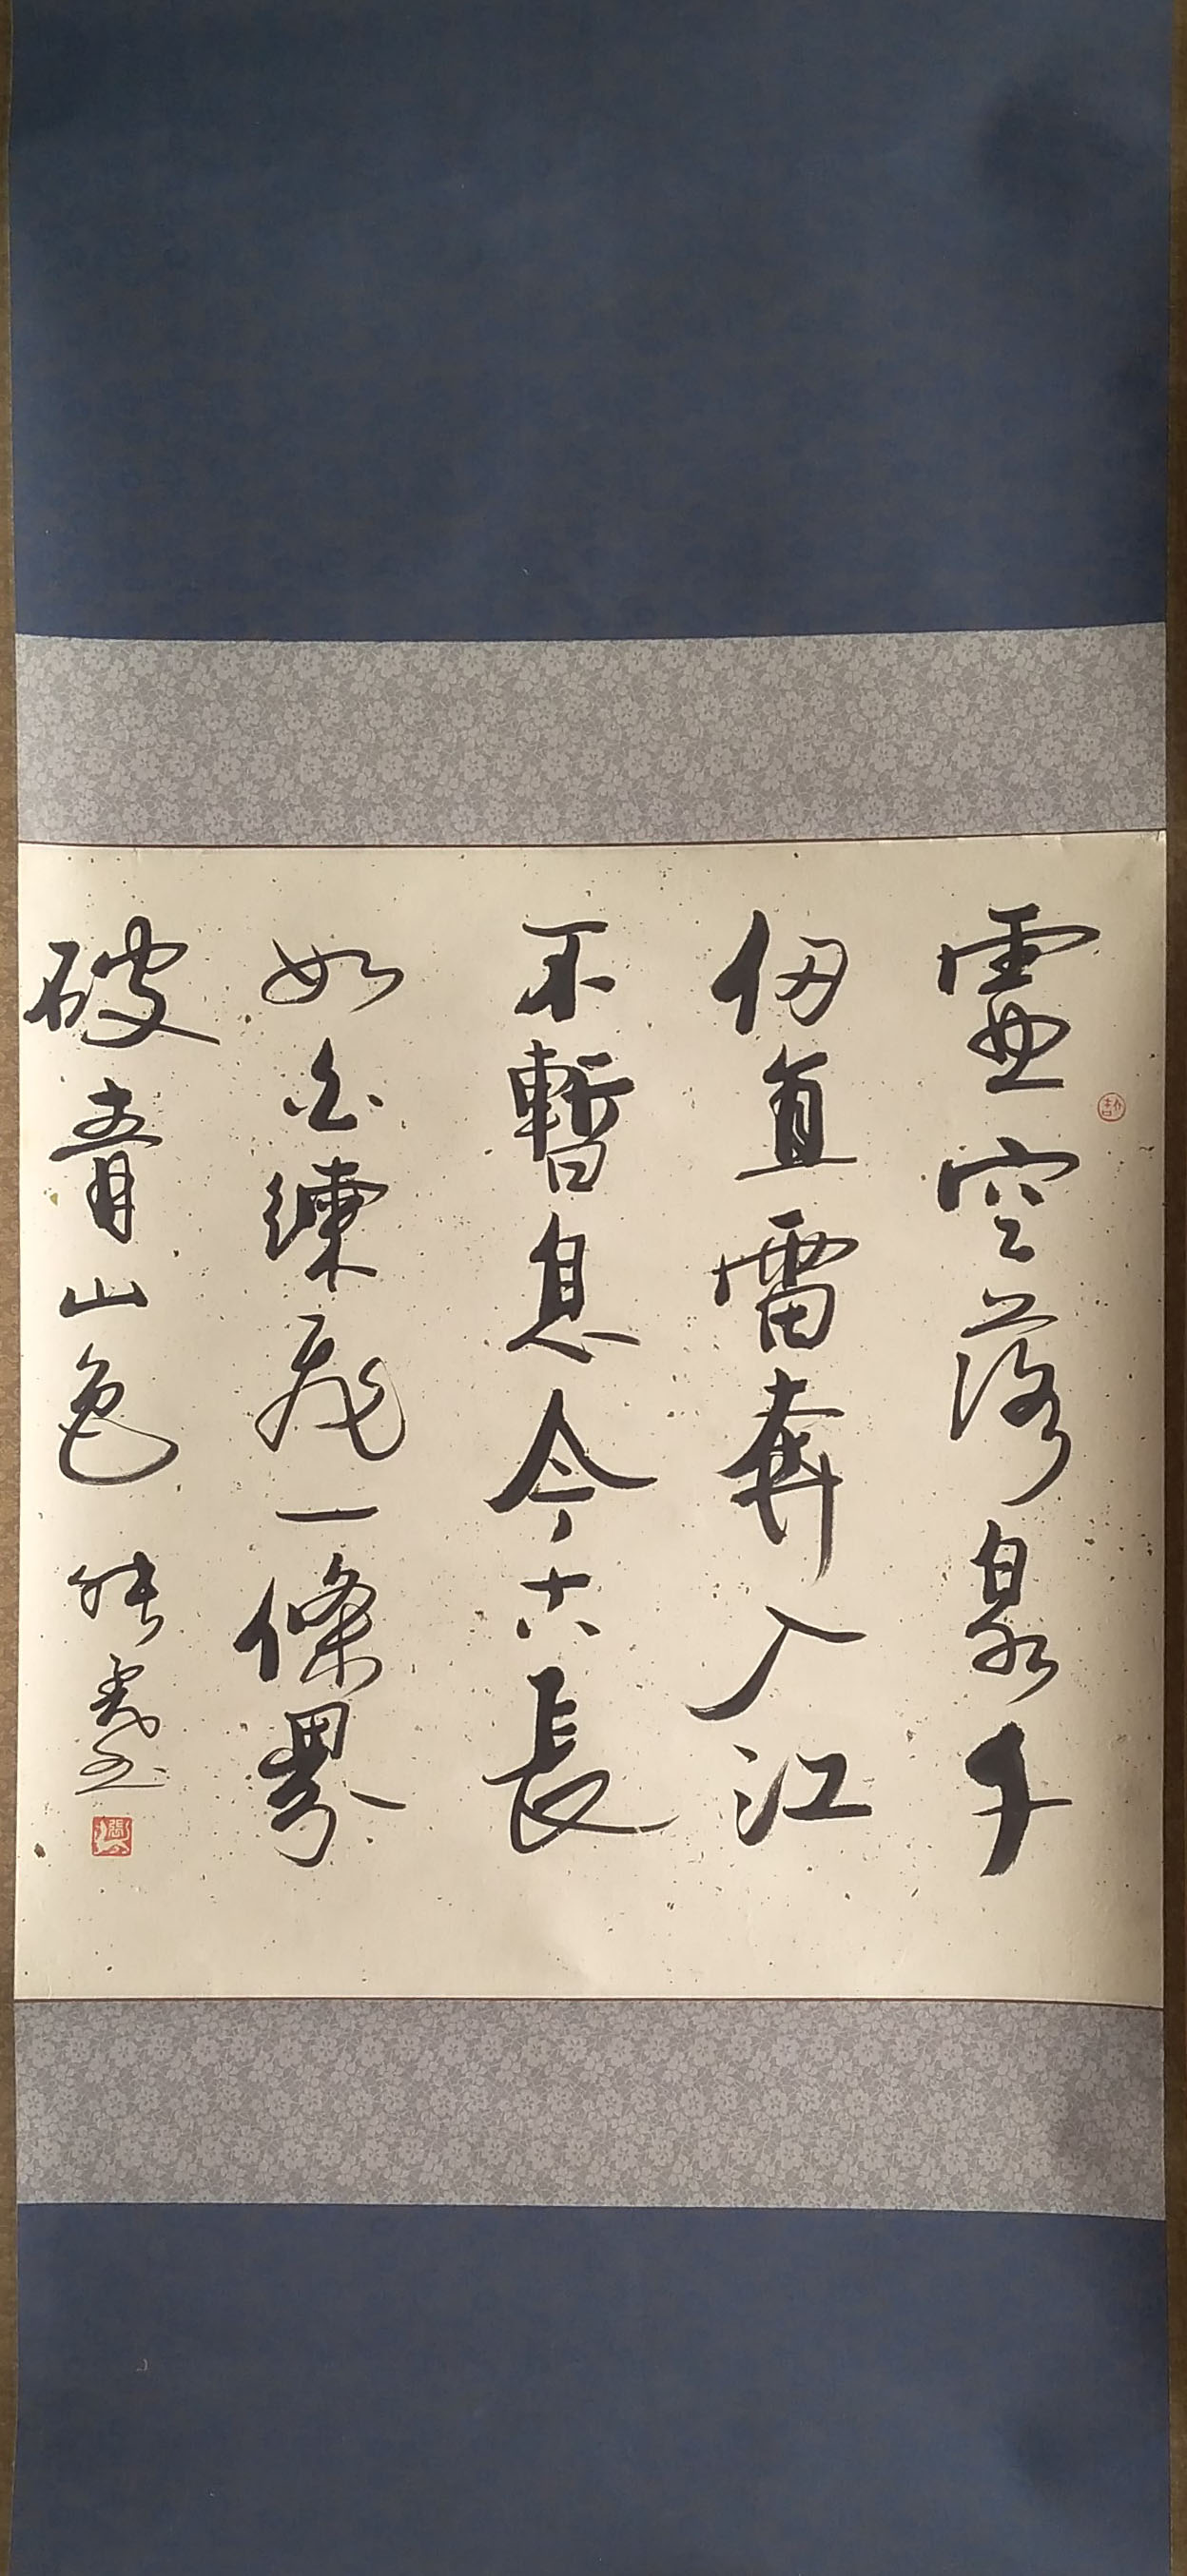 虛空落泉千
仞直雷奔入江
不暫息今古長
如白練飛一條界
破青山色 張